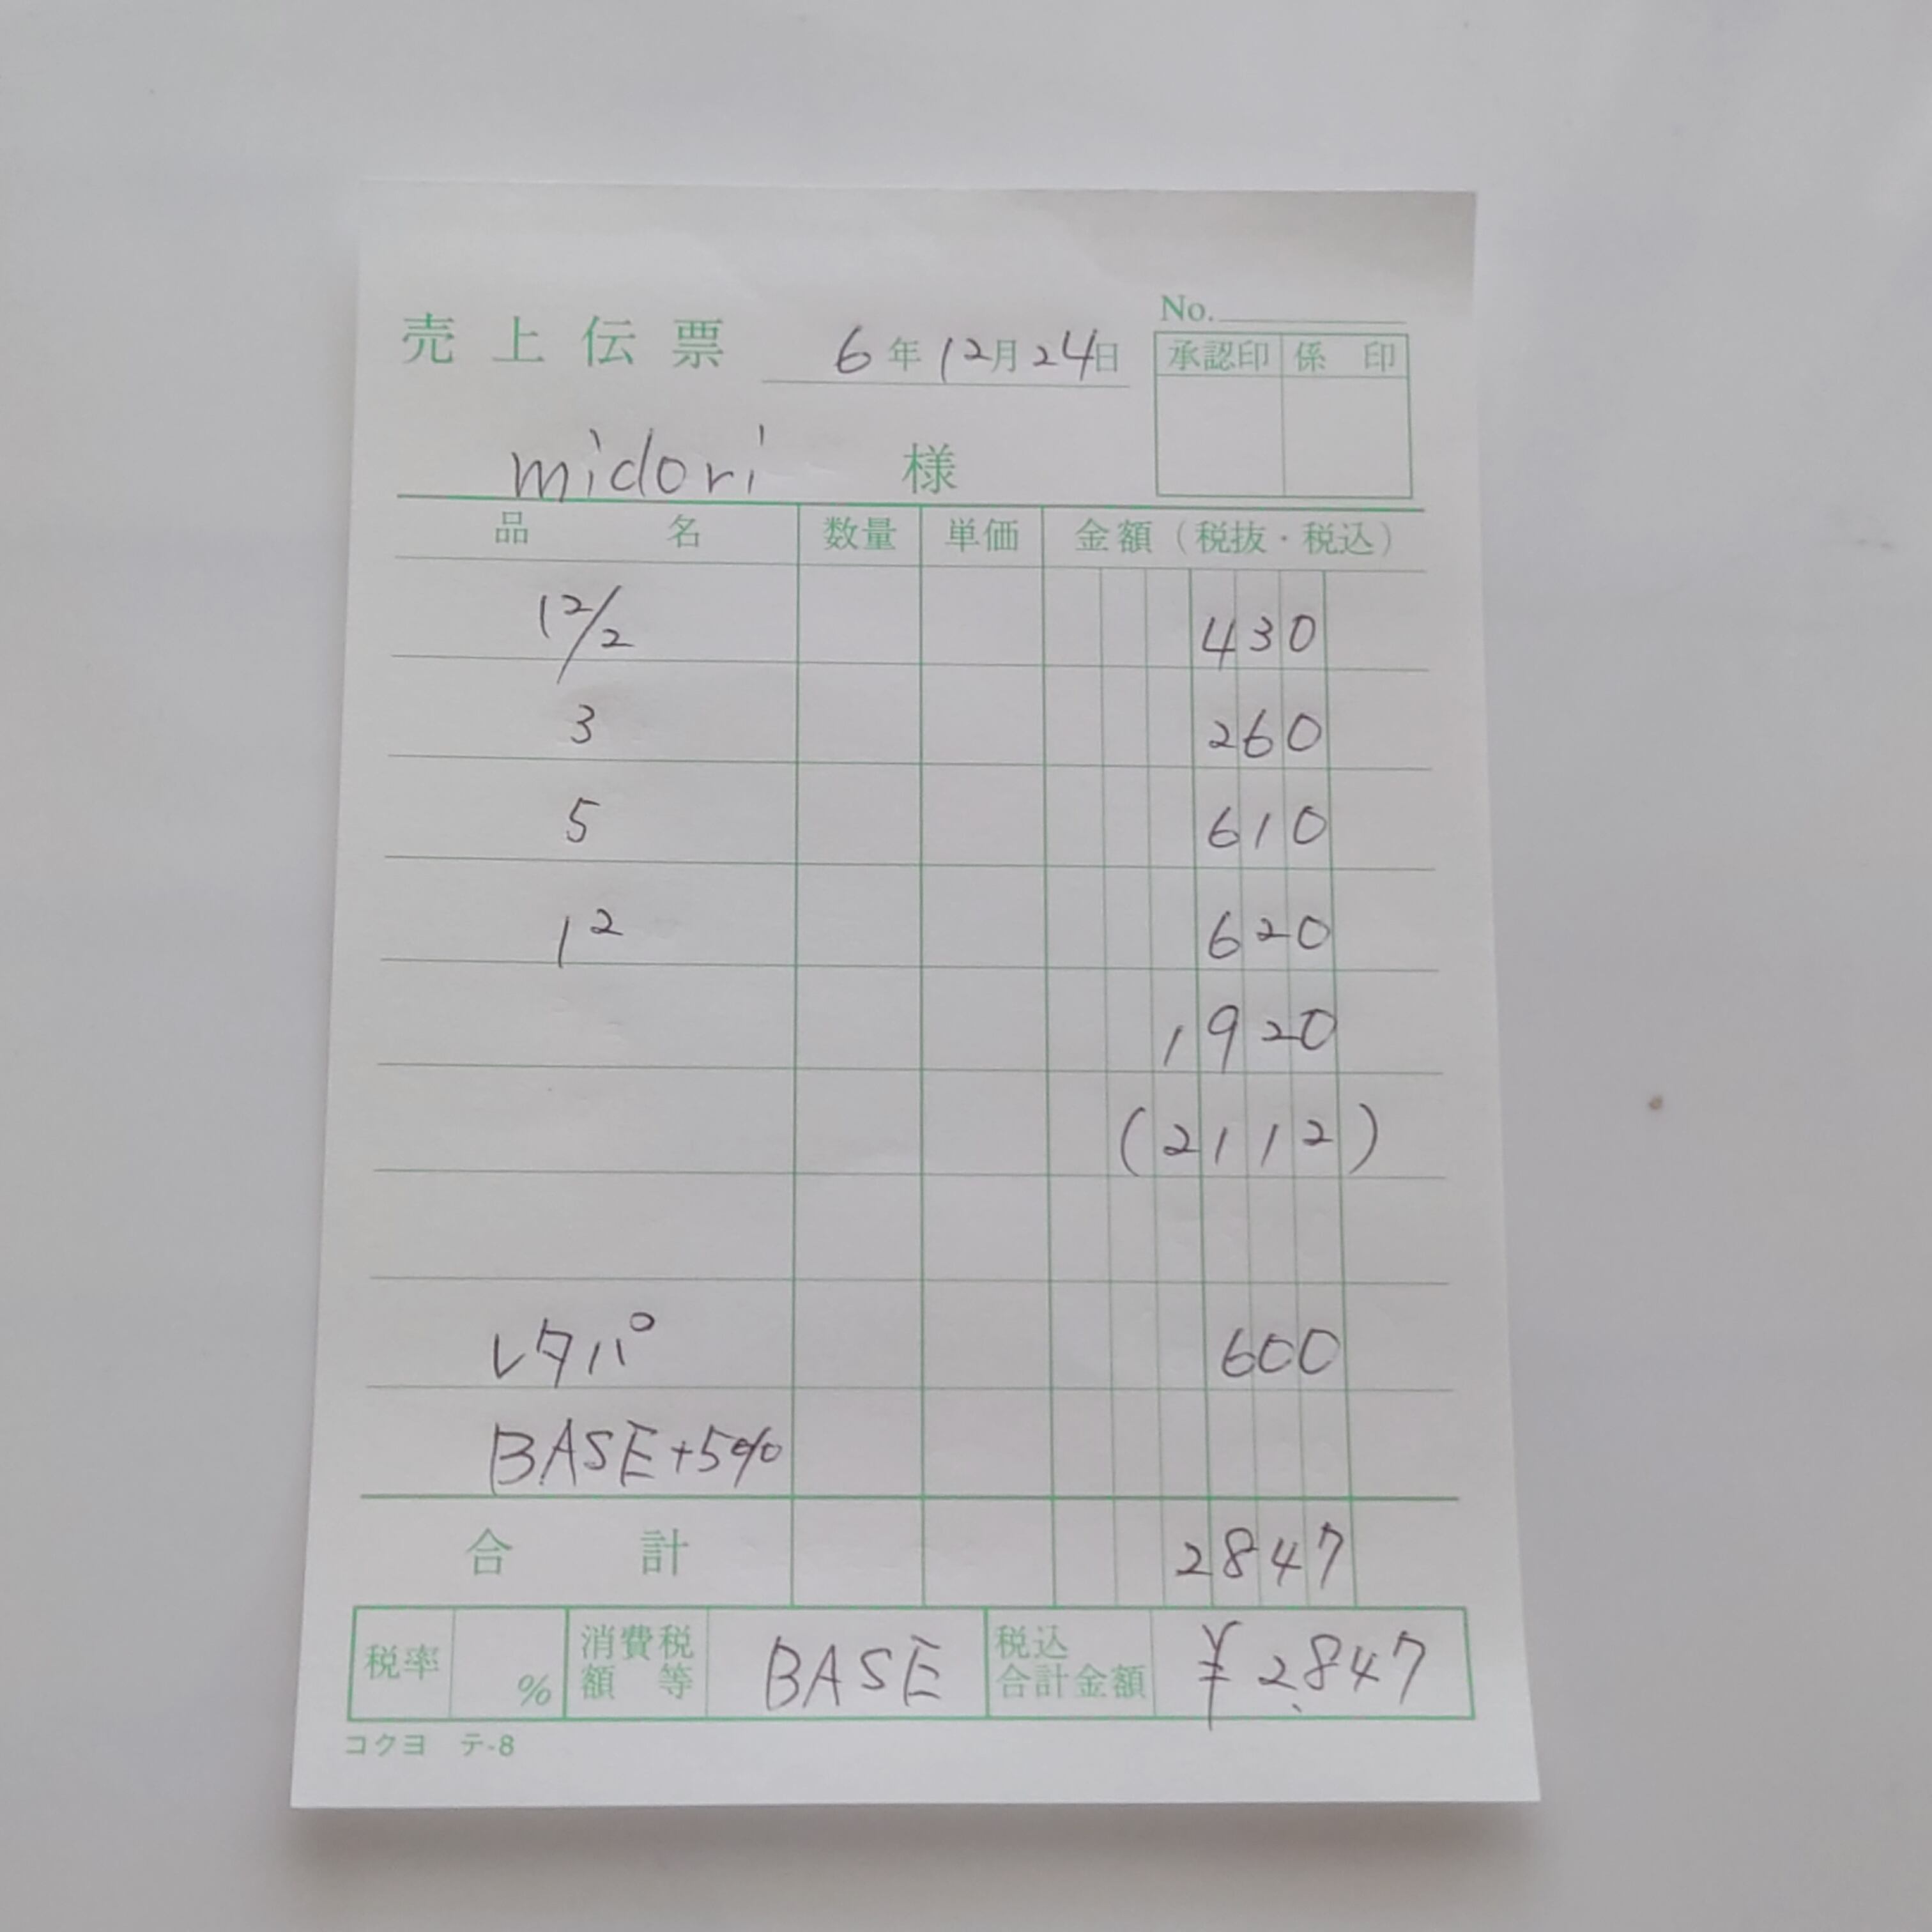 No.
売上伝票 6年12月24日
承認印 係印
midori 様
品名 数量 単価 金額（税抜・税込）
12/2 430
3 260
5 610
12 620
1920
(2112)
レタパ 600
BASE+5%
合計 2847
税率 % 消費税額等 BASE 税込合計金額 ¥2,847
コクヨ テ-8